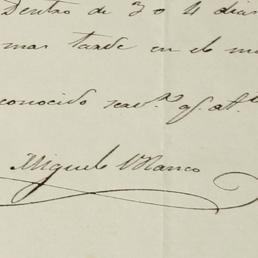 Dentro de 3 o 4 dias
mas tarde en el
conocido serv.r q.
Miguel Blanco